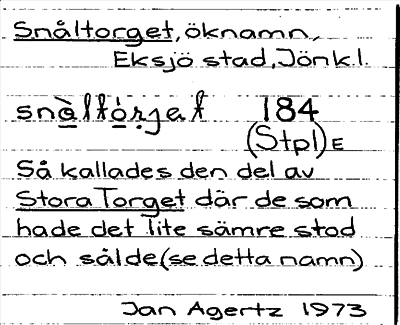 Snåltorget, öknamn,
Eksjö stad, Jönk.l.
snå̀ltórjat 184
(Stpl)E
Så kallades den del av
Stora Torget där de som
hade det lite sämre stod
och sålde (se detta namn)
Jan Agertz 1973